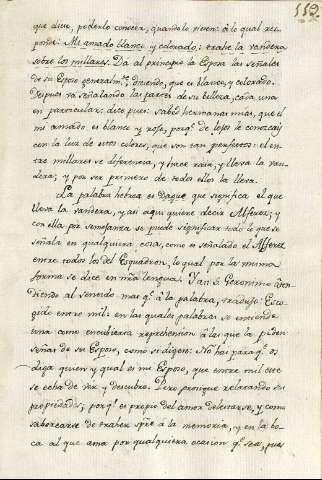 112.
que dice, poderlo conocer, quando lo viesen: à lo qual res-
ponde: Mi amado blanco y colorado: trahe la vandera
sobre los millares. Da al principio la Esposa las señales
de su Esposo generalmte. diciendo, que es blanco, y colorado.
Despues va señalando las partes de su belleza, cada una
en particular: dice pues: sabed hermanas mias, que el
mi amado es blanco y roxo, porqe. de lejos le conozcays
con la luz de estos colores, que son tan perfectos: el en-
tre millares se diferencia, y hace raya, y lleva la van-
dera; y por ser primero de todos ellos la lleva.
La palabra hebrea es Dagul que significa el que
lleva la vandera, y asi aqui quiere decir Alferez; y
con ella por semejanza se puede significar todo lo que se
señala en qualquiera cosa, como es señalado el Alferez
entre todos los del Esquadron, lo qual por la misma
forma se dice en nra lengua. Y an S. Geronimo aten-
diendo al sentido mas qe. à la palabra, tradujo: Esco-
gido entre mil: en las quales palabras se entiende
una como encubierta reprehension à las que la piden
señas de su Esposo, como si digere: No hai para qe. os
diga quien y qual es mi Esposo, que entre mil este
se echa de ver y descubre. Pero prosigue relatando sus
propiedades; porqe. es propio del amor deleitarse, y como
saborearse de traher spre à la memoria, y en la bo-
ca al que ama por qualquiera ocasion qe. sea, pues